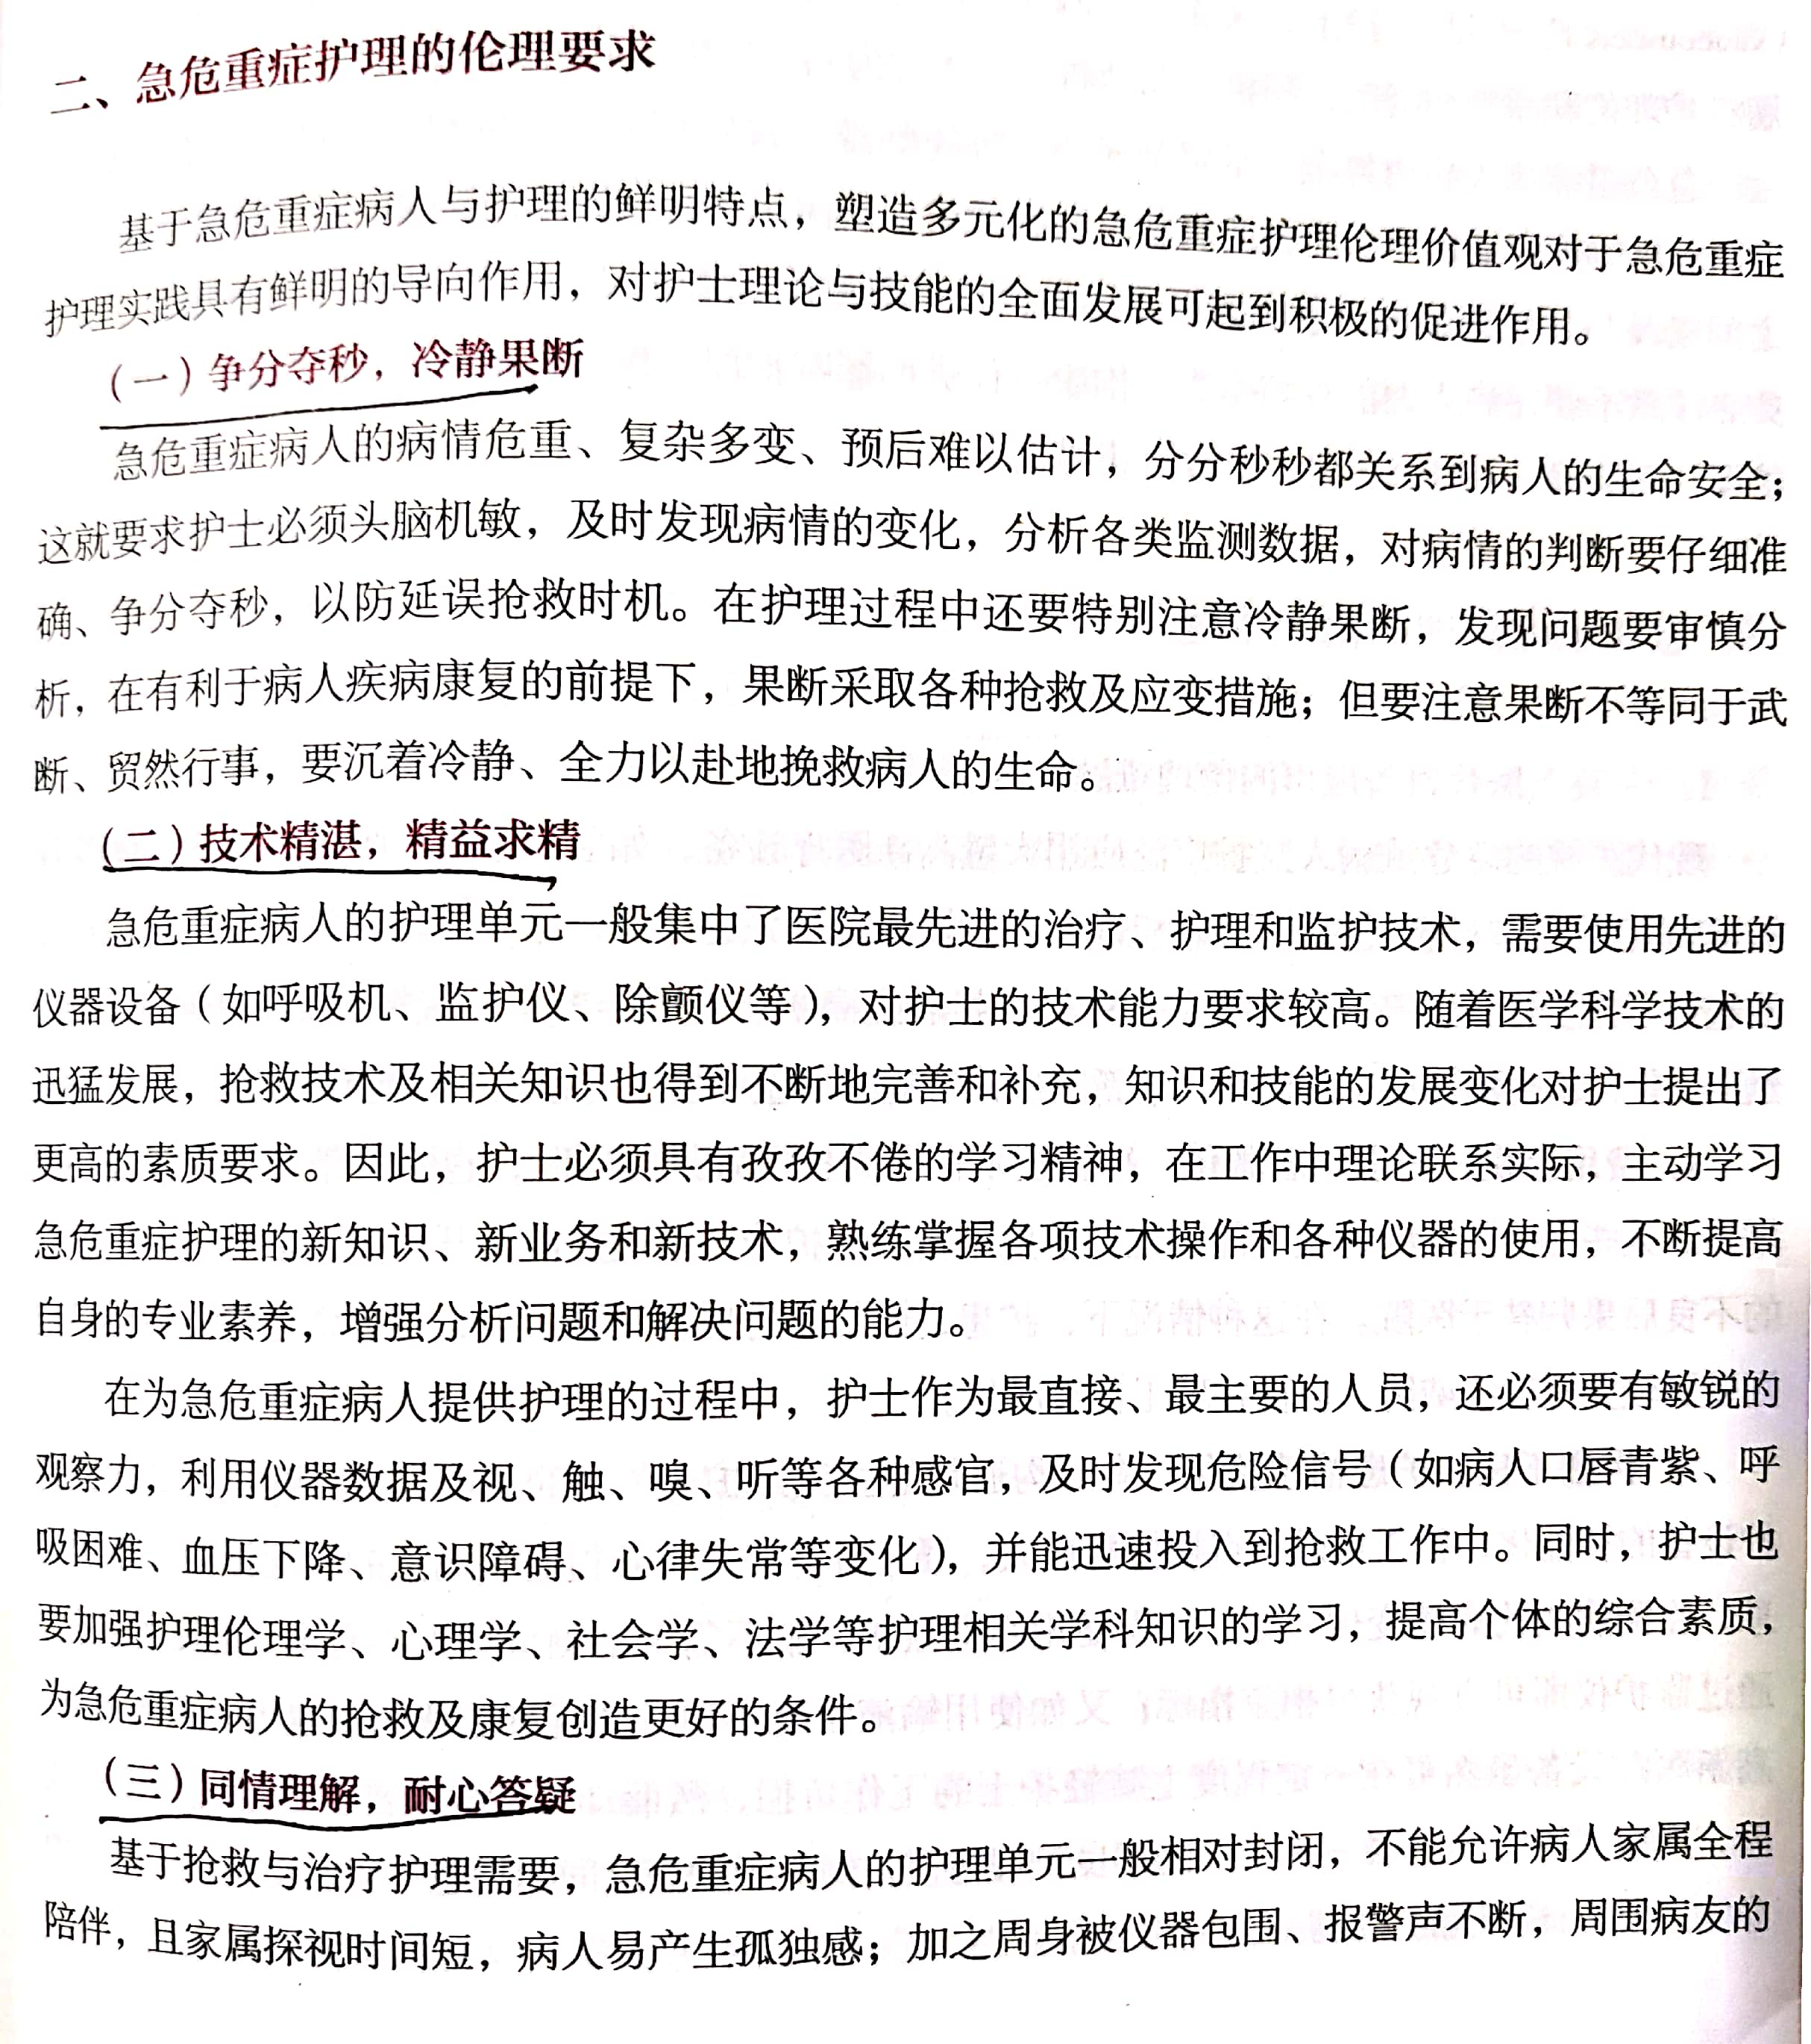 二、急危重症护理的伦理要求
基于急危重症病人与护理的鲜明特点，塑造多元化的急危重症护理伦理价值观对于急危重症
护理实践具有鲜明的导向作用，对护士理论与技能的全面发展可起到积极的促进作用。
（一）争分夺秒，冷静果断
急危重症病人的病情危重、复杂多变、预后难以估计，分分秒秒都关系到病人的生命安全；
这就要求护士必须头脑机敏，及时发现病情的变化，分析各类监测数据，对病情的判断要仔细准
确、争分夺秒，以防延误抢救时机。在护理过程中还要特别注意冷静果断，发现问题要审慎分
析，在有利于病人疾病康复的前提下，果断采取各种抢救及应变措施；但要注意果断不等同于武
断、贸然行事，要沉着冷静、全力以赴地挽救病人的生命。
（二）技术精湛，精益求精
急危重症病人的护理单元一般集中了医院最先进的治疗、护理和监护技术，需要使用先进的
仪器设备（如呼吸机、监护仪、除颤仪等），对护士的技术能力要求较高。随着医学科学技术的
迅猛发展，抢救技术及相关知识也得到不断地完善和补充，知识和技能的发展变化对护士提出了
更高的素质要求。因此，护士必须具有孜孜不倦的学习精神，在工作中理论联系实际，主动学习
急危重症护理的新知识、新业务和新技术，熟练掌握各项技术操作和各种仪器的使用，不断提高
自身的专业素养，增强分析问题和解决问题的能力。
在为急危重症病人提供护理的过程中，护士作为最直接、最主要的人员，还必须要有敏锐的
观察力，利用仪器数据及视、触、嗅、听等各种感官，及时发现危险信号（如病人口唇青紫、呼
吸困难、血压下降、意识障碍、心律失常等变化），并能迅速投入到抢救工作中。同时，护士也
要加强护理伦理学、心理学、社会学、法学等护理相关学科知识的学习，提高个体的综合素质，
为急危重症病人的抢救及康复创造更好的条件。
（三）同情理解，耐心答疑
基于抢救与治疗护理需要，急危重症病人的护理单元一般相对封闭，不能允许病人家属全程
陪伴，且家属探视时间短，病人易产生孤独感；加之周身被仪器包围、报警声不断，周围病友的